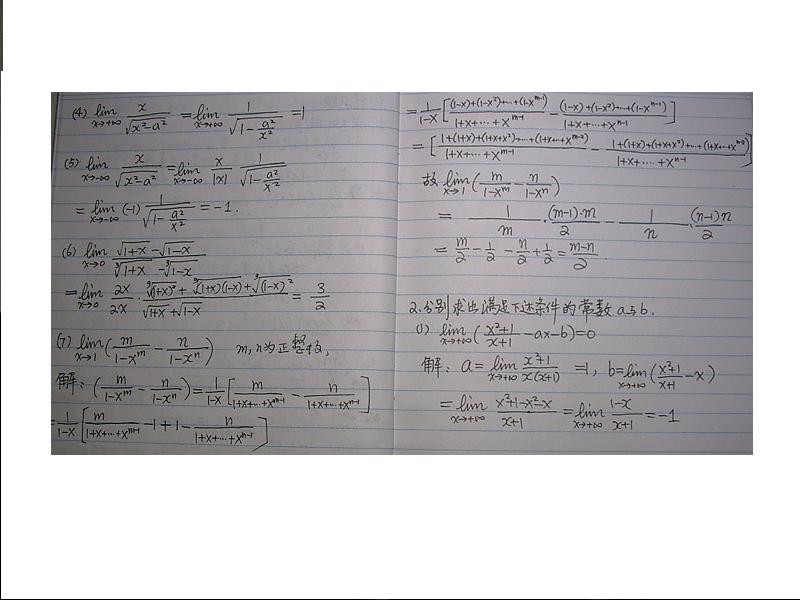 (4) lim x→+∞ x/√(x²-a²) = lim x→+∞ 1/√(1-a²/x²) = 1
(5) lim x→-∞ x/√(x²-a²) = lim x→-∞ x/|x| 1/√(1-a²/x²)
= lim x→-∞ (-1) 1/√(1-a²/x²) = -1.
(6) lim x→0 (√(1+x) - √(1-x))/(∛(1+x) - ∛(1-x))
= lim x→0 2x/2x · (∛(1+x)² + ∛(1+x)(1-x) + ∛(1-x)²)/(√(1+x) + √(1-x)) = 3/2
(7) lim x→1 (m/(1-x^m) - n/(1-x^n)) m,n为正整数,
解: (m/(1-x^m) - n/(1-x^n)) = 1/(1-x) [m/(1+x+…+x^(m-1)) - n/(1+x+…+x^(n-1))]
= 1/(1-x) [m/(1+x+…+x^(m-1)) - 1 + 1 - n/(1+x+…+x^(n-1))]
= 1/(1-x) [((1-x)+(1-x²)+…+(1-x^(m-1)))/(1+x+…+x^(m-1)) - ((1-x)+(1-x²)+…+(1-x^(n-1)))/(1+x+…+x^(n-1))]
= [(1+(1+x)+(1+x+x²)+…+(1+x+…+x^(m-2)))/(1+x+…+x^(m-1)) - (1+(1+x)+(1+x+x²)+…+(1+x+…+x^(n-2)))/(1+x+…+x^(n-1))]
故 lim x→1 (m/(1-x^m) - n/(1-x^n))
= 1/m · (m-1)·m/2 - 1/n · (n-1)n/2
= m/2 - 1/2 - n/2 + 1/2 = (m-n)/2.
2.分别求出满足下述条件的常数a与b.
(1) lim x→+∞ ((x²+1)/(x+1) - ax - b) = 0
解: a = lim x→+∞ (x²+1)/(x(x+1)) = 1, b = lim x→+∞ ((x²+1)/(x+1) - x)
= lim x→+∞ (x²+1-x²-x)/(x+1) = lim x→+∞ (1-x)/(x+1) = -1